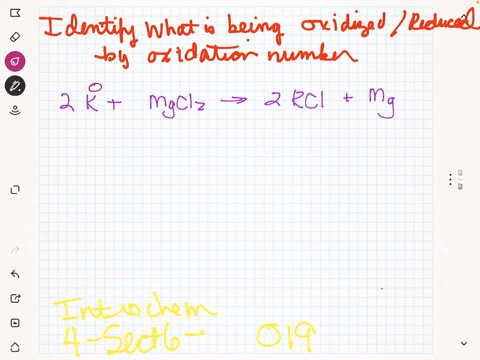 Identify What is being oxidized / Reduced
by oxidation number
0
2 K + MgCl2 → 2 KCl + Mg
Introchem
4-Sect6- 019